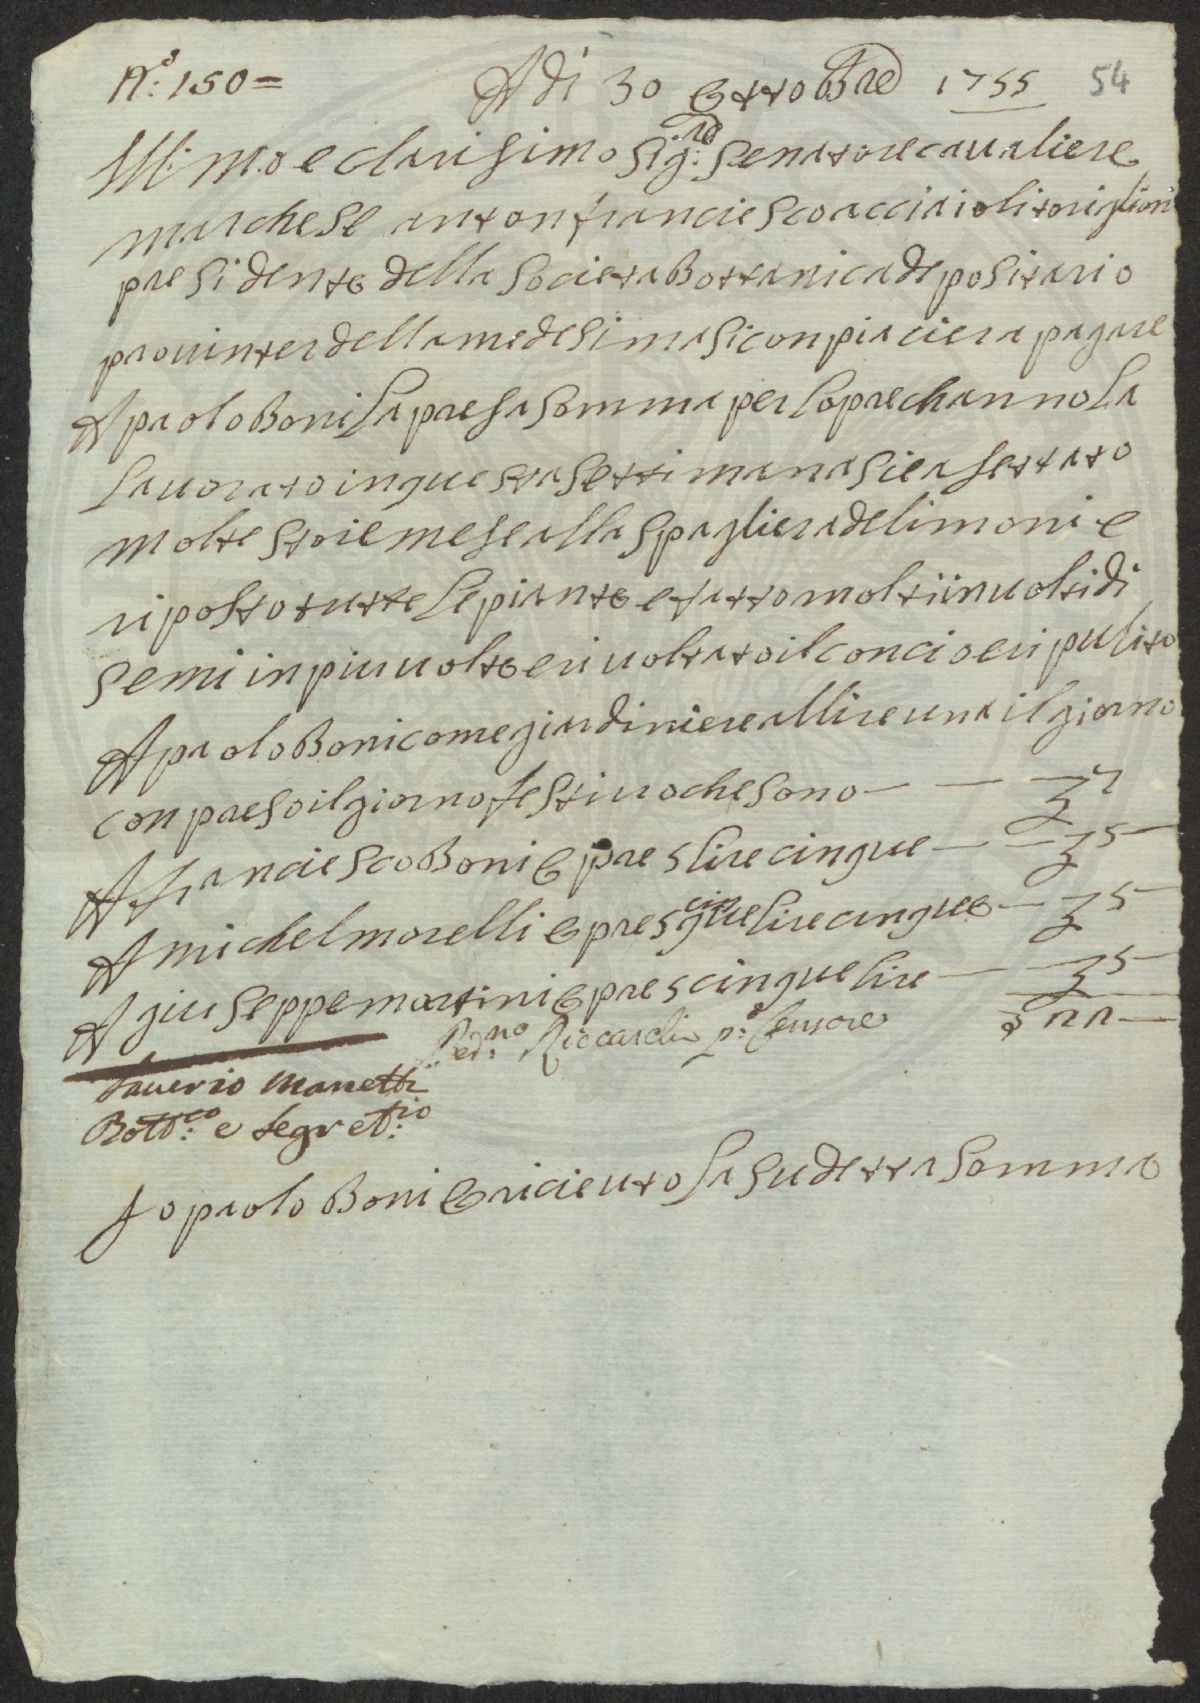 N.º: 150=
Adi 30 Ottobre 1755
54
Ill:mo e clarisimo sig:re senatore caualiere
marchese antonfranciesco acciaioli toriglioni
presidente della societa Bottanica depositario
prouinter della medesima si conpiaciera pagare
A paolo Boni la presa somma per lopre channo la
lauorato in questa settimana siea
molte stoie mese alla spagliera de limoni e
riposto tutte le piante e fatto molti inuolti di
semi in piu uolte e riuoltato il concio e ripulito
A paolo Boni come giardiniere allire una il giorno
conpreso il giorno festiuo che sono — — 7
A franciesco Boni E pre 5 lire cinque — — 5
A michel morelli E pre 5 cinque lire cinque — 5
A giuseppe martini E pre 5 cinque lire — 5
22
Ber.no Riccardi p:º Censore
Sauerio Manetti
Bott:co e Segret:rio
Io paolo Boni E riciento la sudetta somma